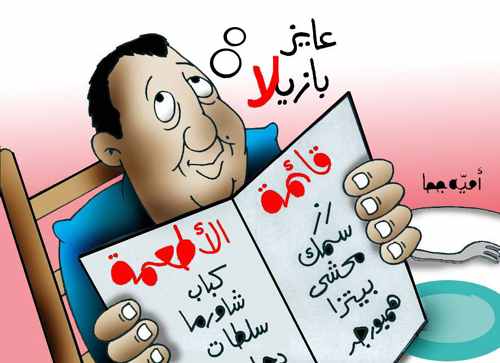 عايز
بازيلا
أميه جحا
قائمة
الأطعمة
رز
سمك
محشي
بيتزا
همبورجر
كباب
شاورما
سلطات